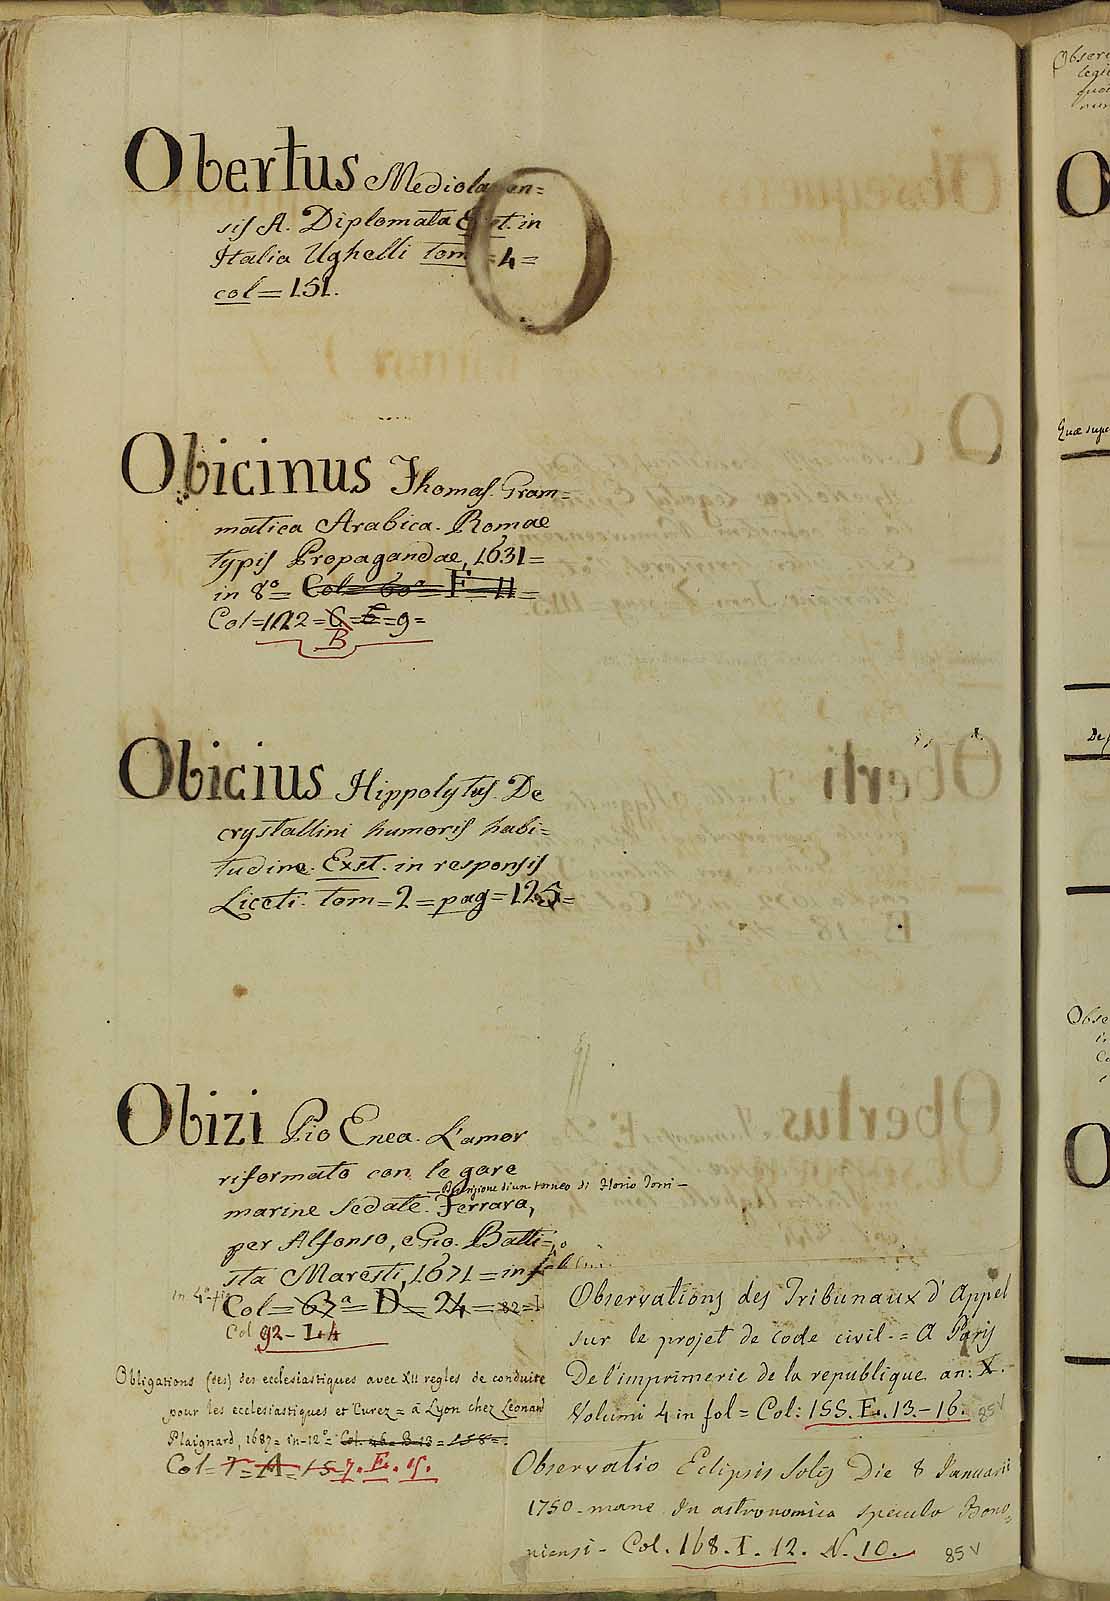 Obertus Mediolanen=
sis A. Diplomata Exst. in
Italia Ughelli tom = 4 =
col = 151.
O
Obicinus Thomas. Gram=
matica Arabica. Romae
typis Propagandae, 1631 =
in 8.o = Col = 60a = F = 11 =
Col = 122 = C = E = 9 =
B
Obicius Hippolytus. De
crystallini humoris habi=
tudine. Exst. in responsis
Liceti. tom = 2 = pag = 125 =
Obizi Pio Enea. L'amor
riformato con le gare
marine sedate. Ferrara,
per Alfonso, e Gio. Batti=
sta Maresti, 1671 = in fol
in 4o
Col = 67a = D = 24 = 82 =
Col 92 - I. 4
Obligations (des) des ecclesiastiques avec XII regles de conduite
pour les ecclesiastiques et Curez = à Lyon chez Leonard
Plaignard, 1687 = in-12o = Col. 46 = B = 13 = 158 =
Col = 7 = A = 15 7. E. 15.
Observations des Tribunaux d'Appel
sur le projet de code civil. = A Paris
De l'imprimerie de la republique an: X.
Volumi 4 in fol = Col: 155. E. 13. - 16. 85v
Observatio Eclipsis Solis Die 8 Januarii
1750. mane In astronomica specula Bono=
niensi - Col. 168. I. 12. N. 10. 85v